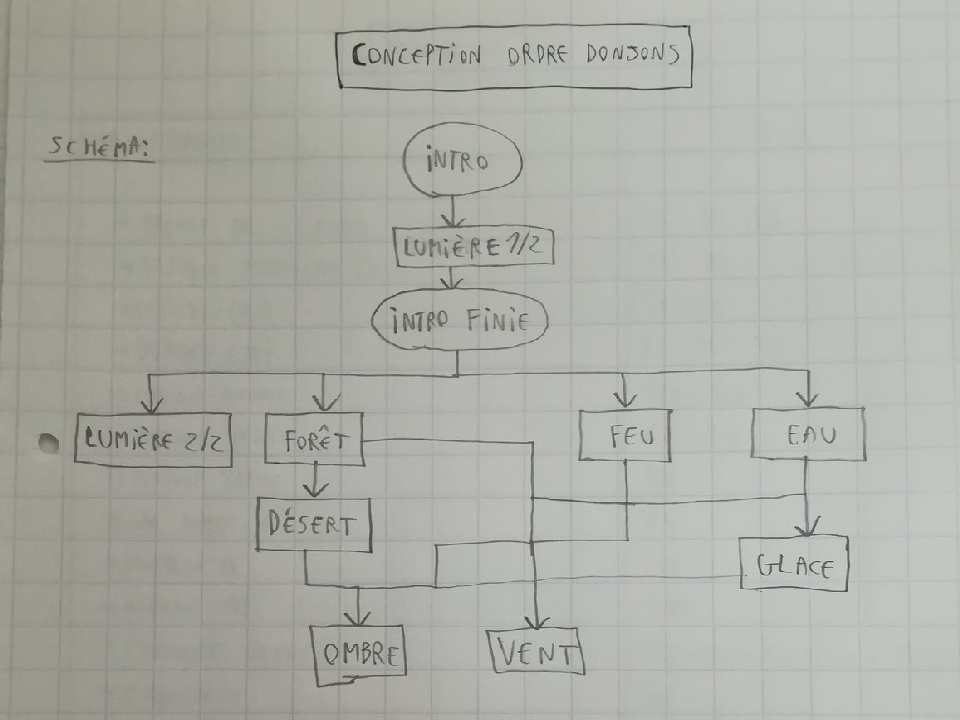 CONCEPTION ORDRE DONJONS
SCHÉMA:
iNTRO
LUMiÈRE 1/2
iNTRO FiNiE
LUMiÈRE 2/2
FORÊT
FEU
EAU
DÉSERT
GLACE
OMBRE
VENT